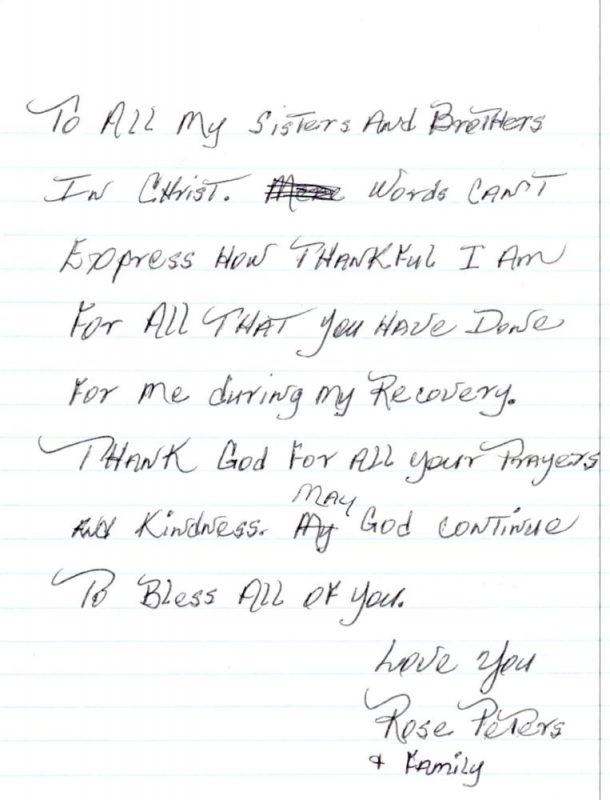 To All My Sisters And Brothers
In Christ. Words Can't
Express How Thankful I Am
For All That you Have Done
For me during my Recovery.
Thank God For All your Prayers
And Kindness. May God continue
To Bless All of you.
Love you
Rose Peters
+ Family